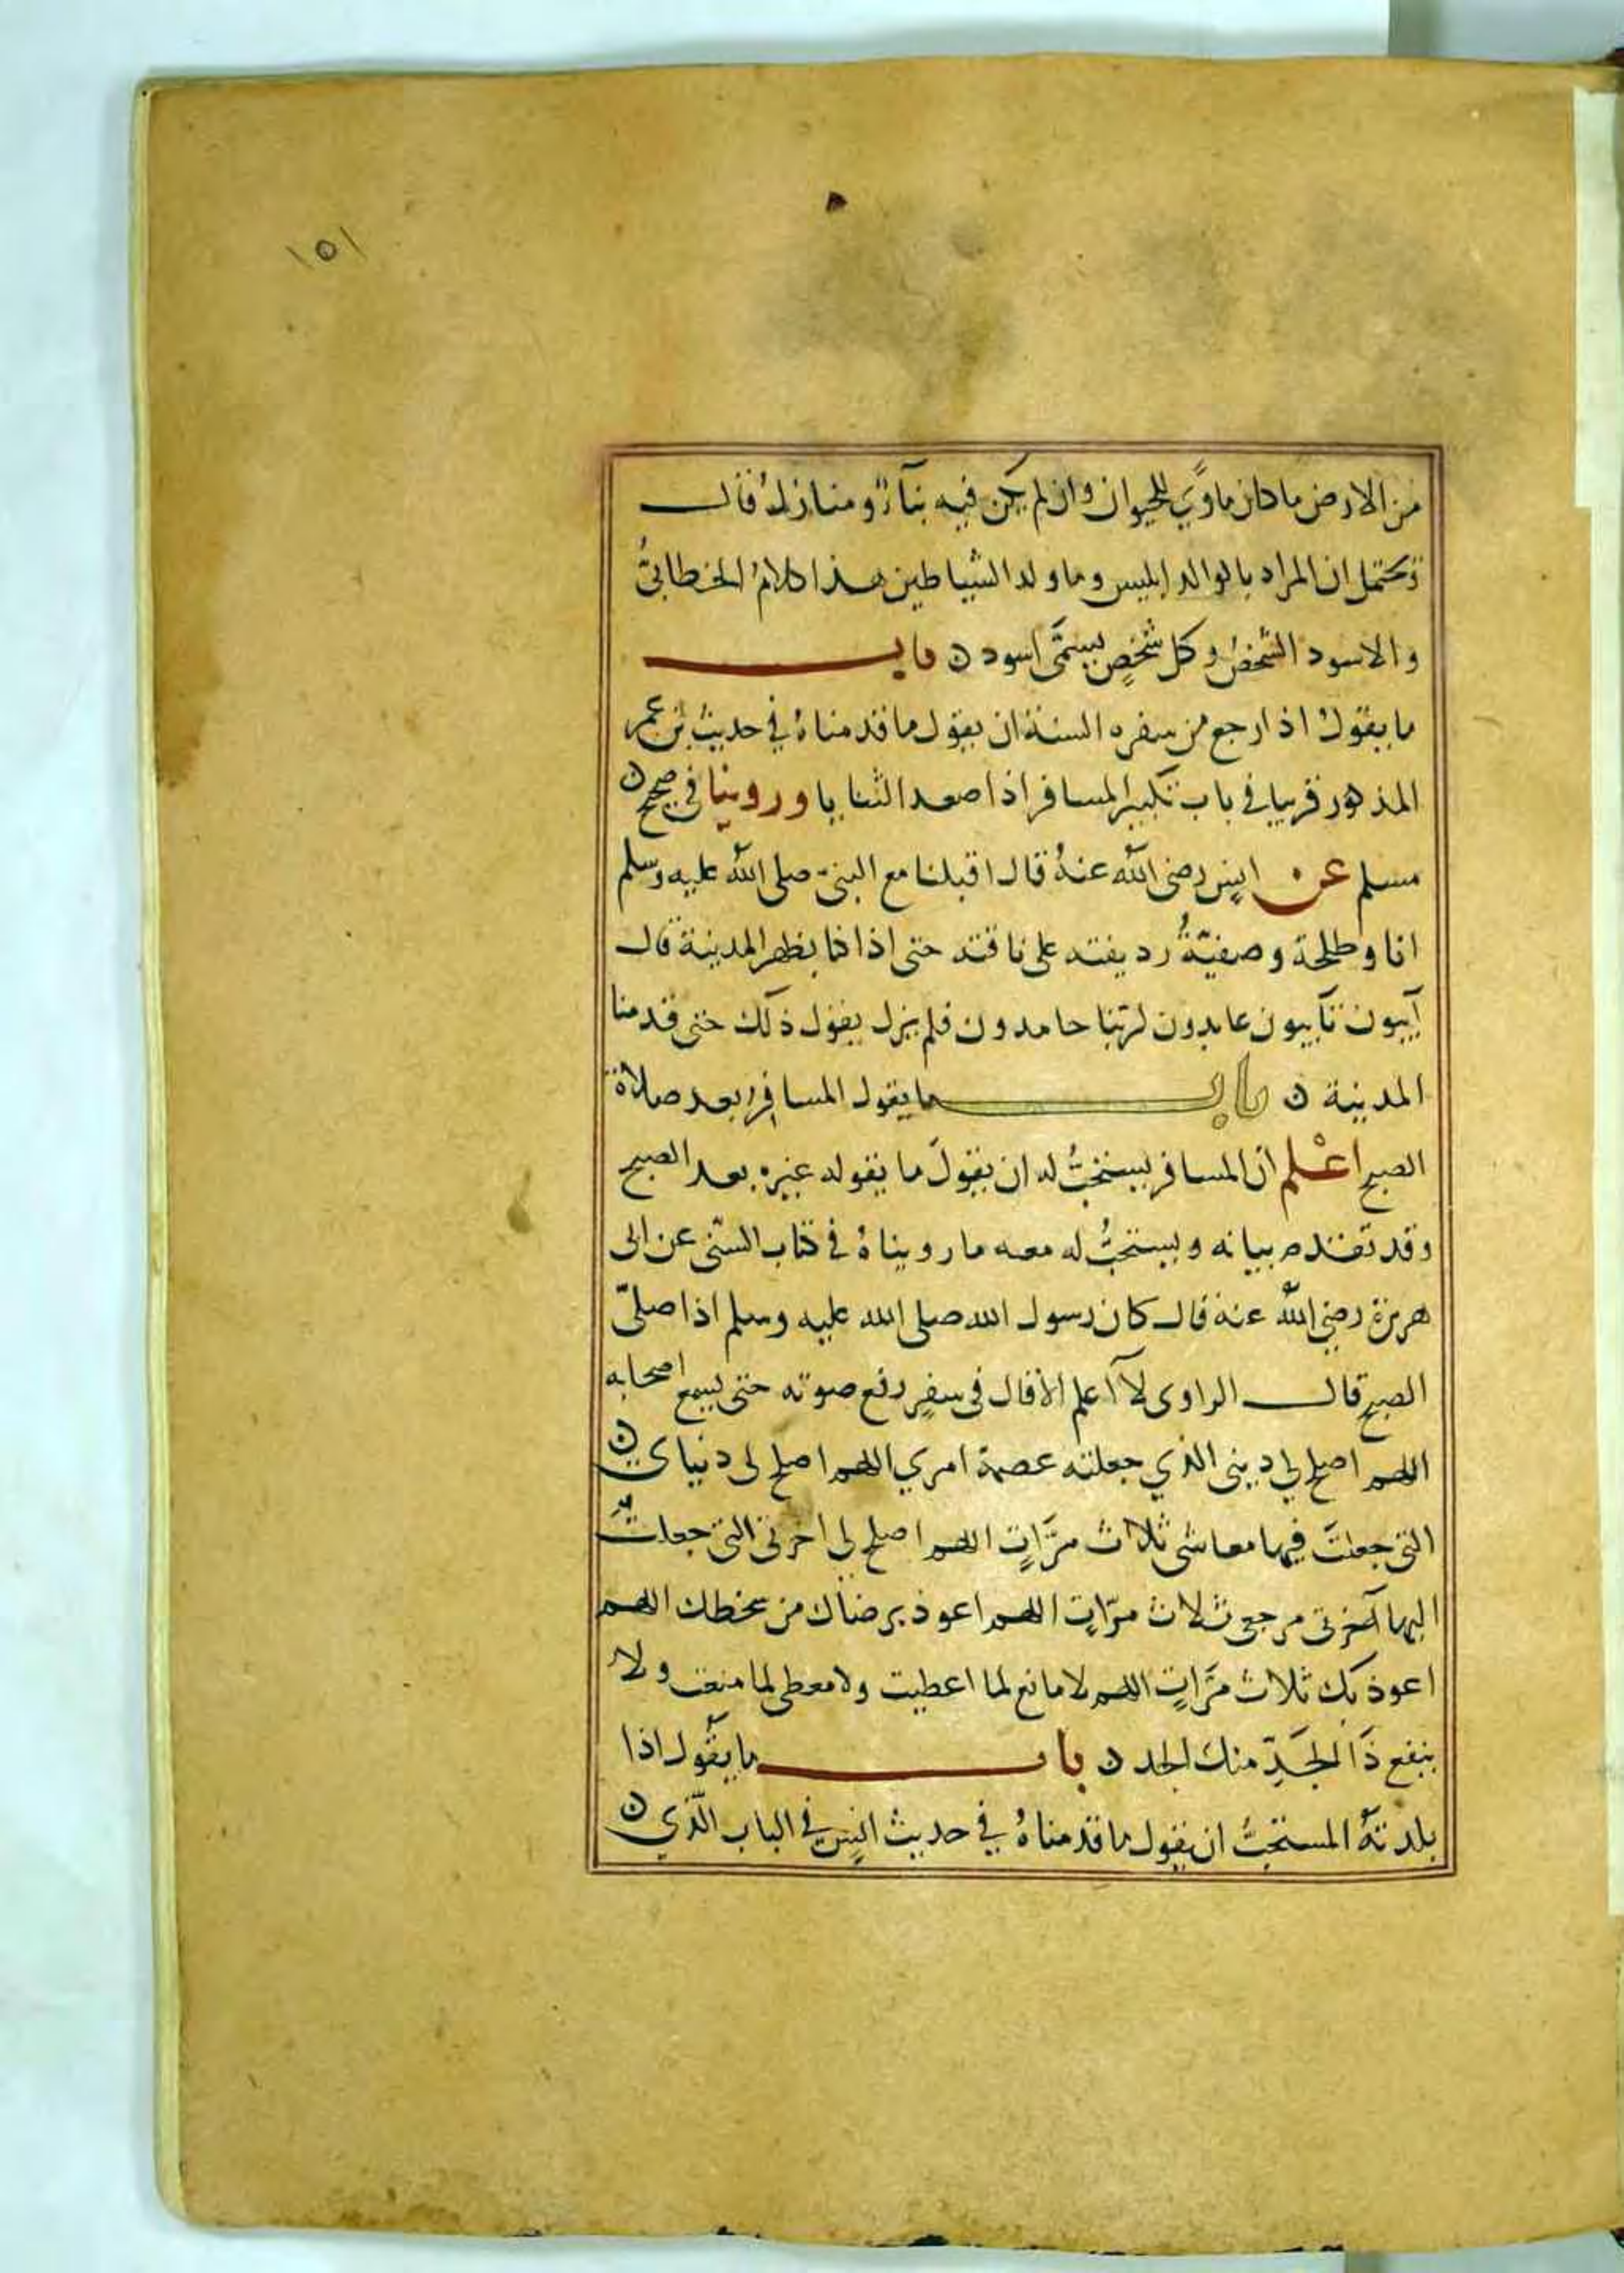 ١٥١
من الارض ما كان ماوًي للحيوان وان لم يكن فيه بناءٌ ومنازل قال
ويحتمل ان المراد بالوالد ابليس وما ولد الشياطين هذا كلامُ الخطابيُّ
والاسود الشخصُ وكل شخصٍ يسمَّى اسود ن باب
ما يقولُ اذا رجع من سفره السنة ان يقول ما قدمناهُ في حديث بن عمر
المذكور قريبا في باب تكبير المسافر اذا صعد الثنايا وروينا في صحيح ن
مسلم عن انسٍ رضي الله عنهُ قال اقبلنا مع النبيّ صلى الله عليه وسلم
انا وطلحة وصفيّةُ رديفته على ناقته حتى اذا كنا بظهر المدينة قال
آيبون تآيبون عابدون لربّنا حامدون فلم يزل يقول ذلك حتى قدمنا
المدينة ن باب ما يقول المسافر بعد صلاة
الصبح اعْلم ان المسافر يستحبُّ له ان يقولَ ما يقوله غيره بعد الصبح
وقد تقدم بيانه ويستحبُّ له معه ما رويناهُ في كتاب السّنى عن ابى
هريرة رضي الله عنه قال كان رسول الله صلى الله عليه وسلم اذا صلىّ
الصبح قال الراوى لا اعلم الا قال فى سفرٍ رفع صوته حتى يسمع اصحابه
اللهم اصلح لي دينى الذي جعلته عصمة امري اللهم اصلح لى دنياي ن
التى جعلتَ فيها معاشى ثلاث مرَّاتٍ اللهم اصلح لى اخرتى التى جعلت
اليها آخرتى مرجعى ثلاث مرّاتٍ اللهم اعوذ برضاك من سخطك اللهم
اعوذ بك ثلاث مرَّاتٍ اللهم لا مانع لما اعطيت ولا معطى لما منعت ولا
ينفع ذَا الجَدِّ منك الجد ن باب ما يقُول اذا
بلدتهُ المستحبُّ ان يقول ما قدمناهُ في حديث انسٍ في الباب الّذي ن